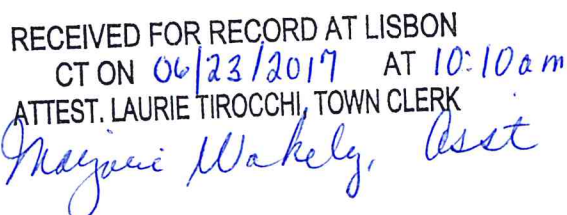 RECEIVED FOR RECORD AT LISBON
CT ON 06/23/2017 AT 10:10am
ATTEST. LAURIE TIROCCHI, TOWN CLERK
Marjorie Wakely, Asst